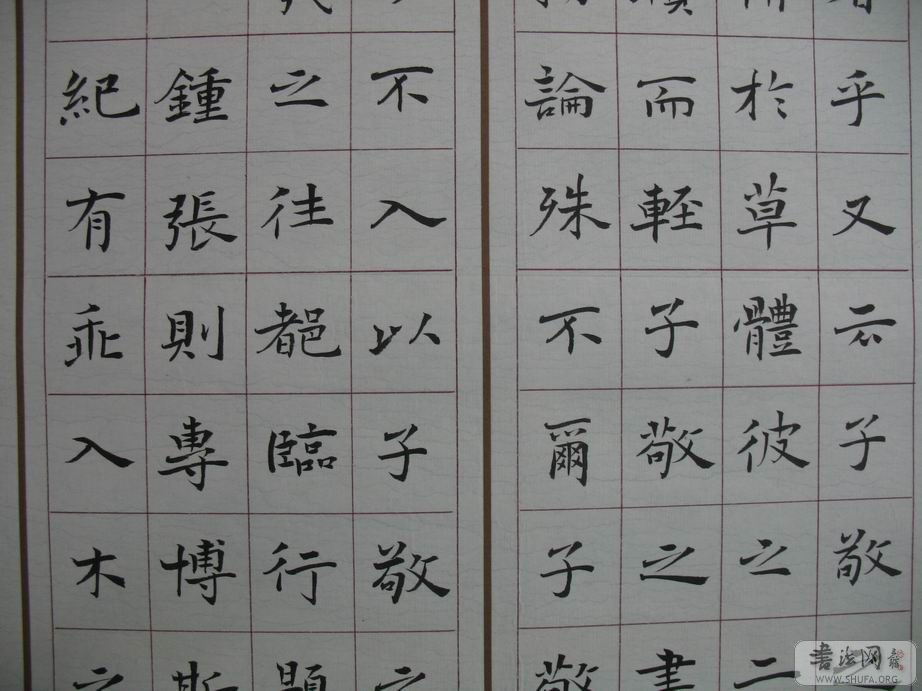 乎又云子敬
於草體彼之二
而輕子敬之書
論殊不爾子敬
不入以子敬之
之往都臨行題
鍾張則專博斯
紀有乖入木之
书法网
WWW.SHUFA.ORG